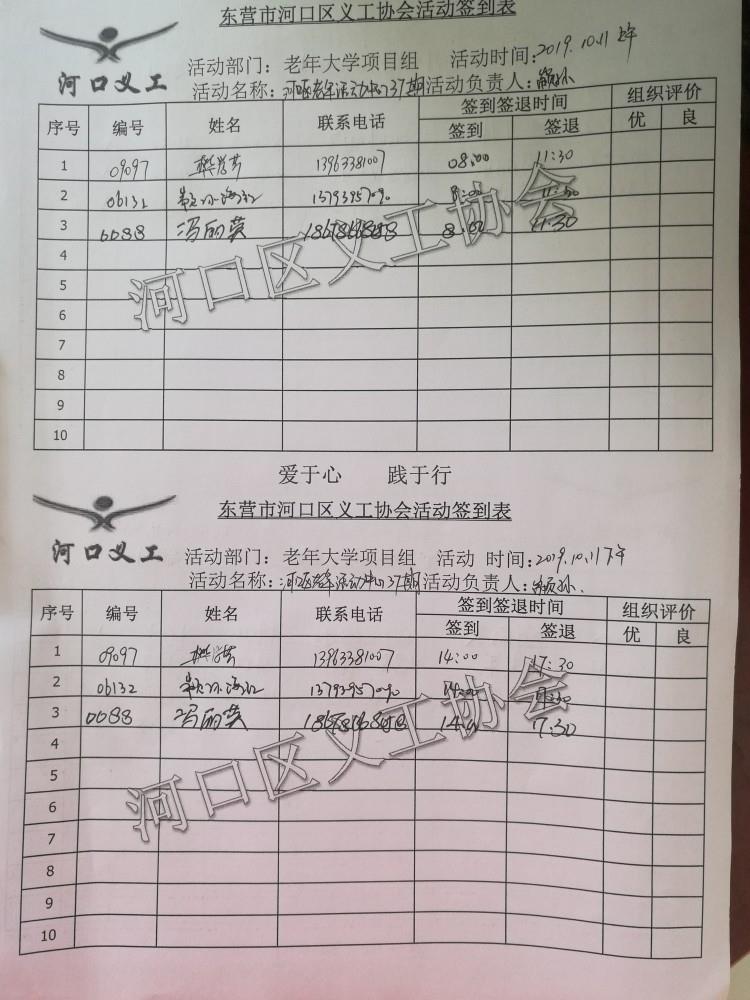 东营市河口区义工协会活动签到表
河口义工
活动部门：老年大学项目组 活动时间：2019.10.11上午
活动名称：河口区老年活动中心37期 活动负责人：
序号 编号 姓名 联系电话 签到签退时间 组织评价
签到 签退 优 良
1 09097 13963381007 08:00 11:30
2 06132 8:00 11:30
3 0088 冯丽英 8:00 11:30
4
5
6
7
8
9
10
河口区义工协会
爱于心 践于行
东营市河口区义工协会活动签到表
河口义工
活动部门：老年大学项目组 活动 时间：2019.10.11下午
活动名称：河口区老年活动中心37期 活动负责人：
序号 编号 姓名 联系电话 签到签退时间 组织评价
签到 签退 优 良
1 09097 13963381007 14:00 17:30
2 06132 14:00 17:30
3 0088 冯丽英 7:30
4
5
6
7
8
9
10
河口区义工协会